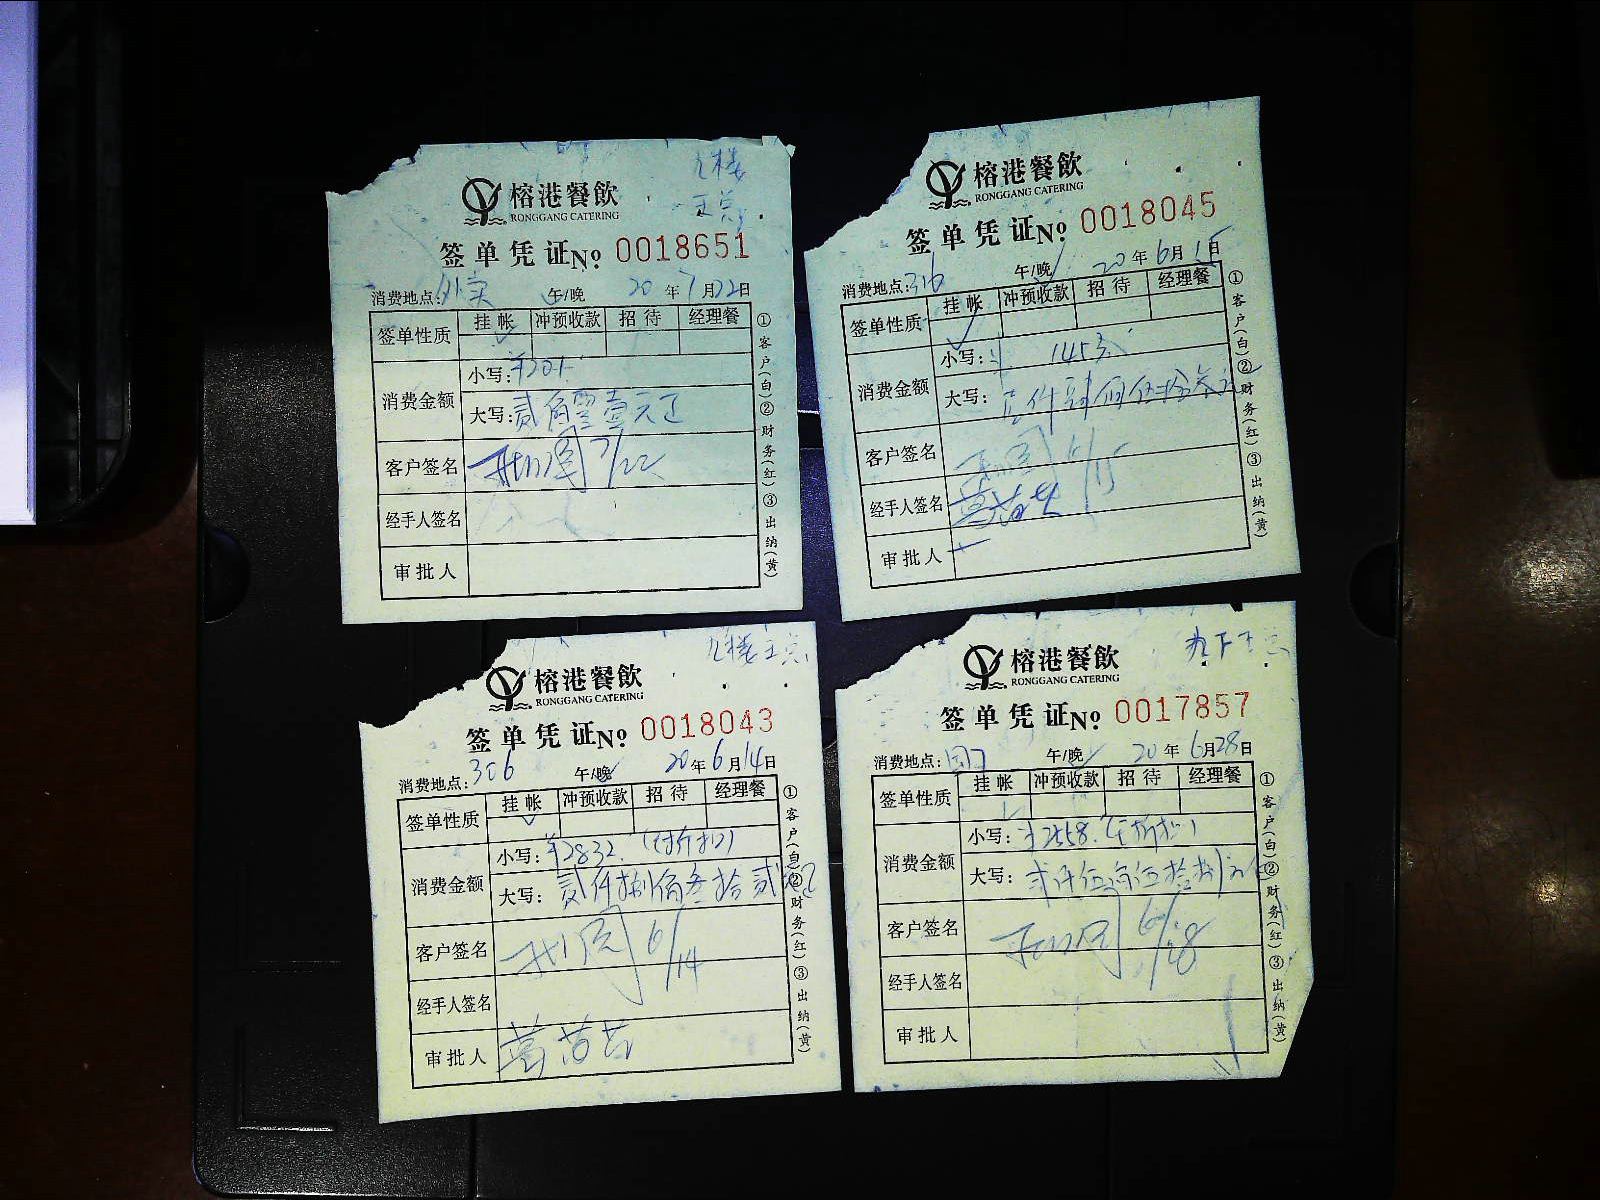 九楼
王总
榕港餐飲
RONGGANG CATERING
签单凭证No 0018651
消费地点: 外卖 午/晚 20年7月22日
签单性质 挂帐 冲预收款 招待 经理餐
消费金额 小写: ¥201.
大写: 贰佰零壹元正
客户签名 7/22
经手人签名
审批人
①客户(白)②财务(红)③出纳(黄)
榕港餐飲
RONGGANG CATERING
签单凭证No 0018045
消费地点: 316 午/晚 20年6月15日
签单性质 挂帐 冲预收款 招待 经理餐
消费金额 小写: ¥ 1453.
大写: 壹仟肆佰伍拾叁元
客户签名 6/15
经手人签名
审批人
①客户(白)②财务(红)③出纳(黄)
九楼王总
榕港餐飲
RONGGANG CATERING
签单凭证No 0018043
消费地点: 306 午/晚 20年6月14日
签单性质 挂帐 冲预收款 招待 经理餐
消费金额 小写: ¥2832. (付折扣)
大写: 贰仟捌佰叁拾贰元正
客户签名 6/14
经手人签名
审批人
①客户(白)②财务(红)③出纳(黄)
王总
榕港餐飲
RONGGANG CATERING
签单凭证No 0017857
消费地点: 午/晚 20年6月28日
签单性质 挂帐 冲预收款 招待 经理餐
消费金额 小写: ¥2558.
大写: 贰仟伍佰伍拾捌元
客户签名 6/28
经手人签名
审批人
①客户(白)②财务(红)③出纳(黄)